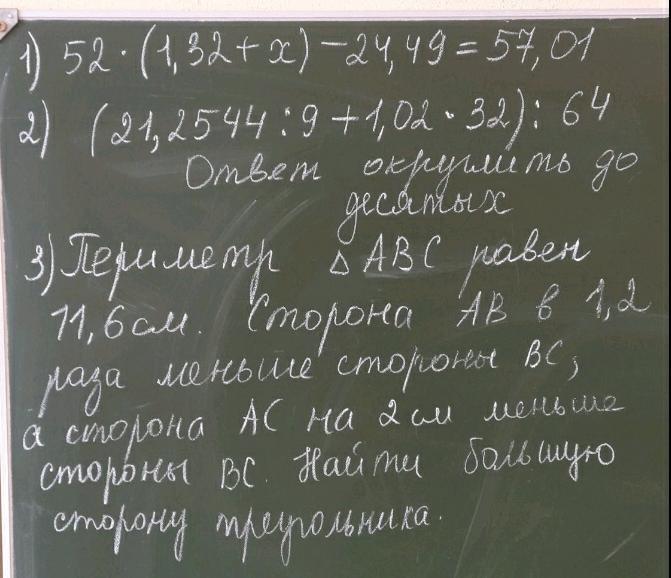 1) 52 · (1,32 + x) - 24,49 = 57,01
2) (21,2544 : 9 + 1,02 · 32) : 64
Ответ округлить до
десятых
3) Периметр △ ABC равен
11,6 см. Сторона AB в 1,2
раза меньше стороны BC,
а сторона AC на 2 см меньше
стороны BC. Найти большую
сторону треугольника.